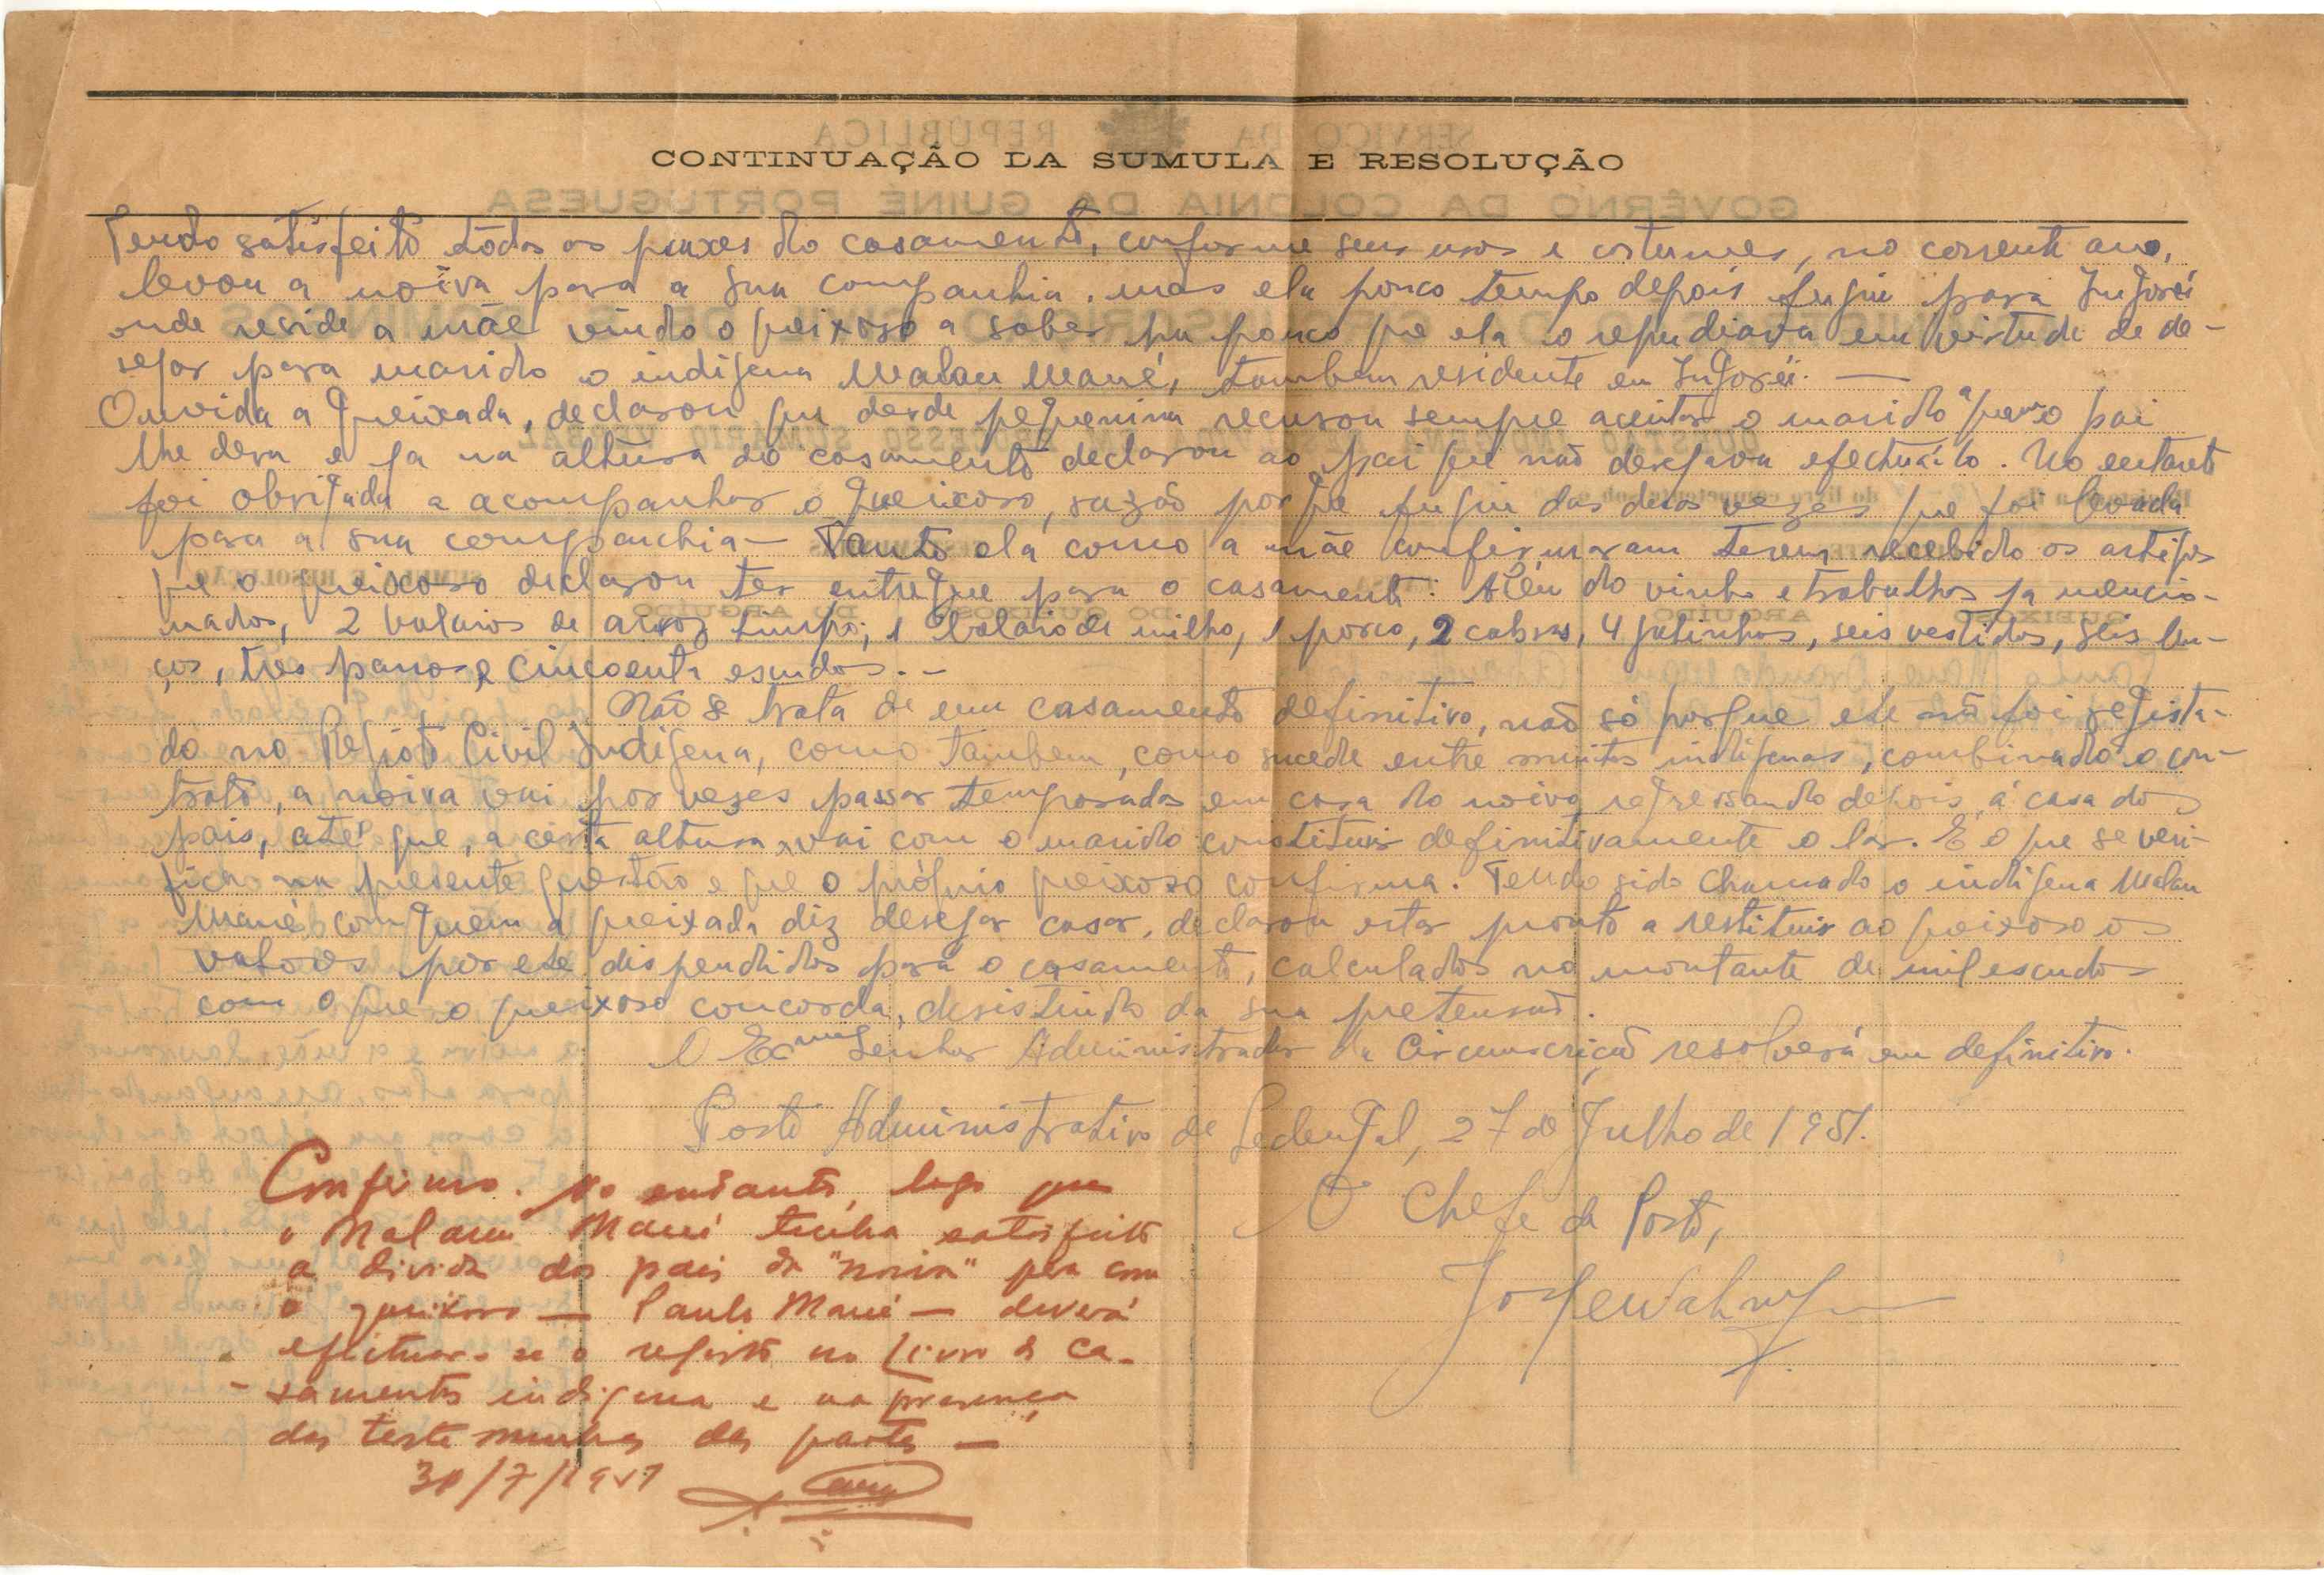 CONTINUAÇÃO DA SUMULA E RESOLUÇÃO
Tendo satisfeito todas as praxes do casamento, conforme seus usos e costumes, no corrente ano,
levou a noiva para a sua companhia, mas ela pouco tempo depois fugiu para Ingorei
onde reside a mãe vindo o queixoso a saber ha pouco que ela o repudiava em virtude de de-
sejar para marido o indigena Malan Mané, tambem residente em Ingorei. —
Ouvida a queixada, declarou que desde pequenina recusou sempre aceitar o marido a quem o pai
lhe dera e ja na altura do casamento declarou ao pai que não desejava efectuá-lo. No entanto
foi obrigada a acompanhar o queixoso, razão porque fugiu das duas vezes que foi levada
para a sua companhia — Tanto ela como a mãe confirmaram terem recebido os artigos
que o queixoso declarou ter entregue para o casamento: Além do vinho e trabalhos ja mencio-
nados, 2 balaios de arroz limpo, 1 balaio de milho, 1 porco, 2 cabras, 4 galinhas, seis vestidos, seis len-
ços, tres panos e cincoenta escudos. —
Não se trata de um casamento definitivo, não só porque ele não foi regista-
do no Registo Civil Indigena, como tambem, como sucede entre muitos indigenas, combinado o con-
trato, a noiva vai por vezes passar temporadas em casa do noivo regressando depois á casa dos
pais, até que, a certa altura, vai com o marido constituir definitivamente o lar. É o que se veri-
fica na presente questão e que o próprio queixoso confirma. Tendo sido chamado o indigena Malan
Mané com quem a queixada diz desejar casar, declarou estar pronto a restituir ao queixoso os
valores por ele dispendidos para o casamento, calculados no montante de mil escudos
com o que o queixoso concorda, desistindo da sua pretensão.
O Exmo Senhor Administrador da Circunscrição resolverá em definitivo.
Posto Administrativo de 27 de Julho de 1951.
O Chefe do Posto,
Confirmo. No entanto, logo que
o Malam Mané tenha satisfeito
a divida dos pais da "noiva" para com
o queixoso — Paulo Mané — deverá
efectuar-se o registo no Livro de ca-
samentos indigena e na presença
das testemunhas das partes —
30/7/1951